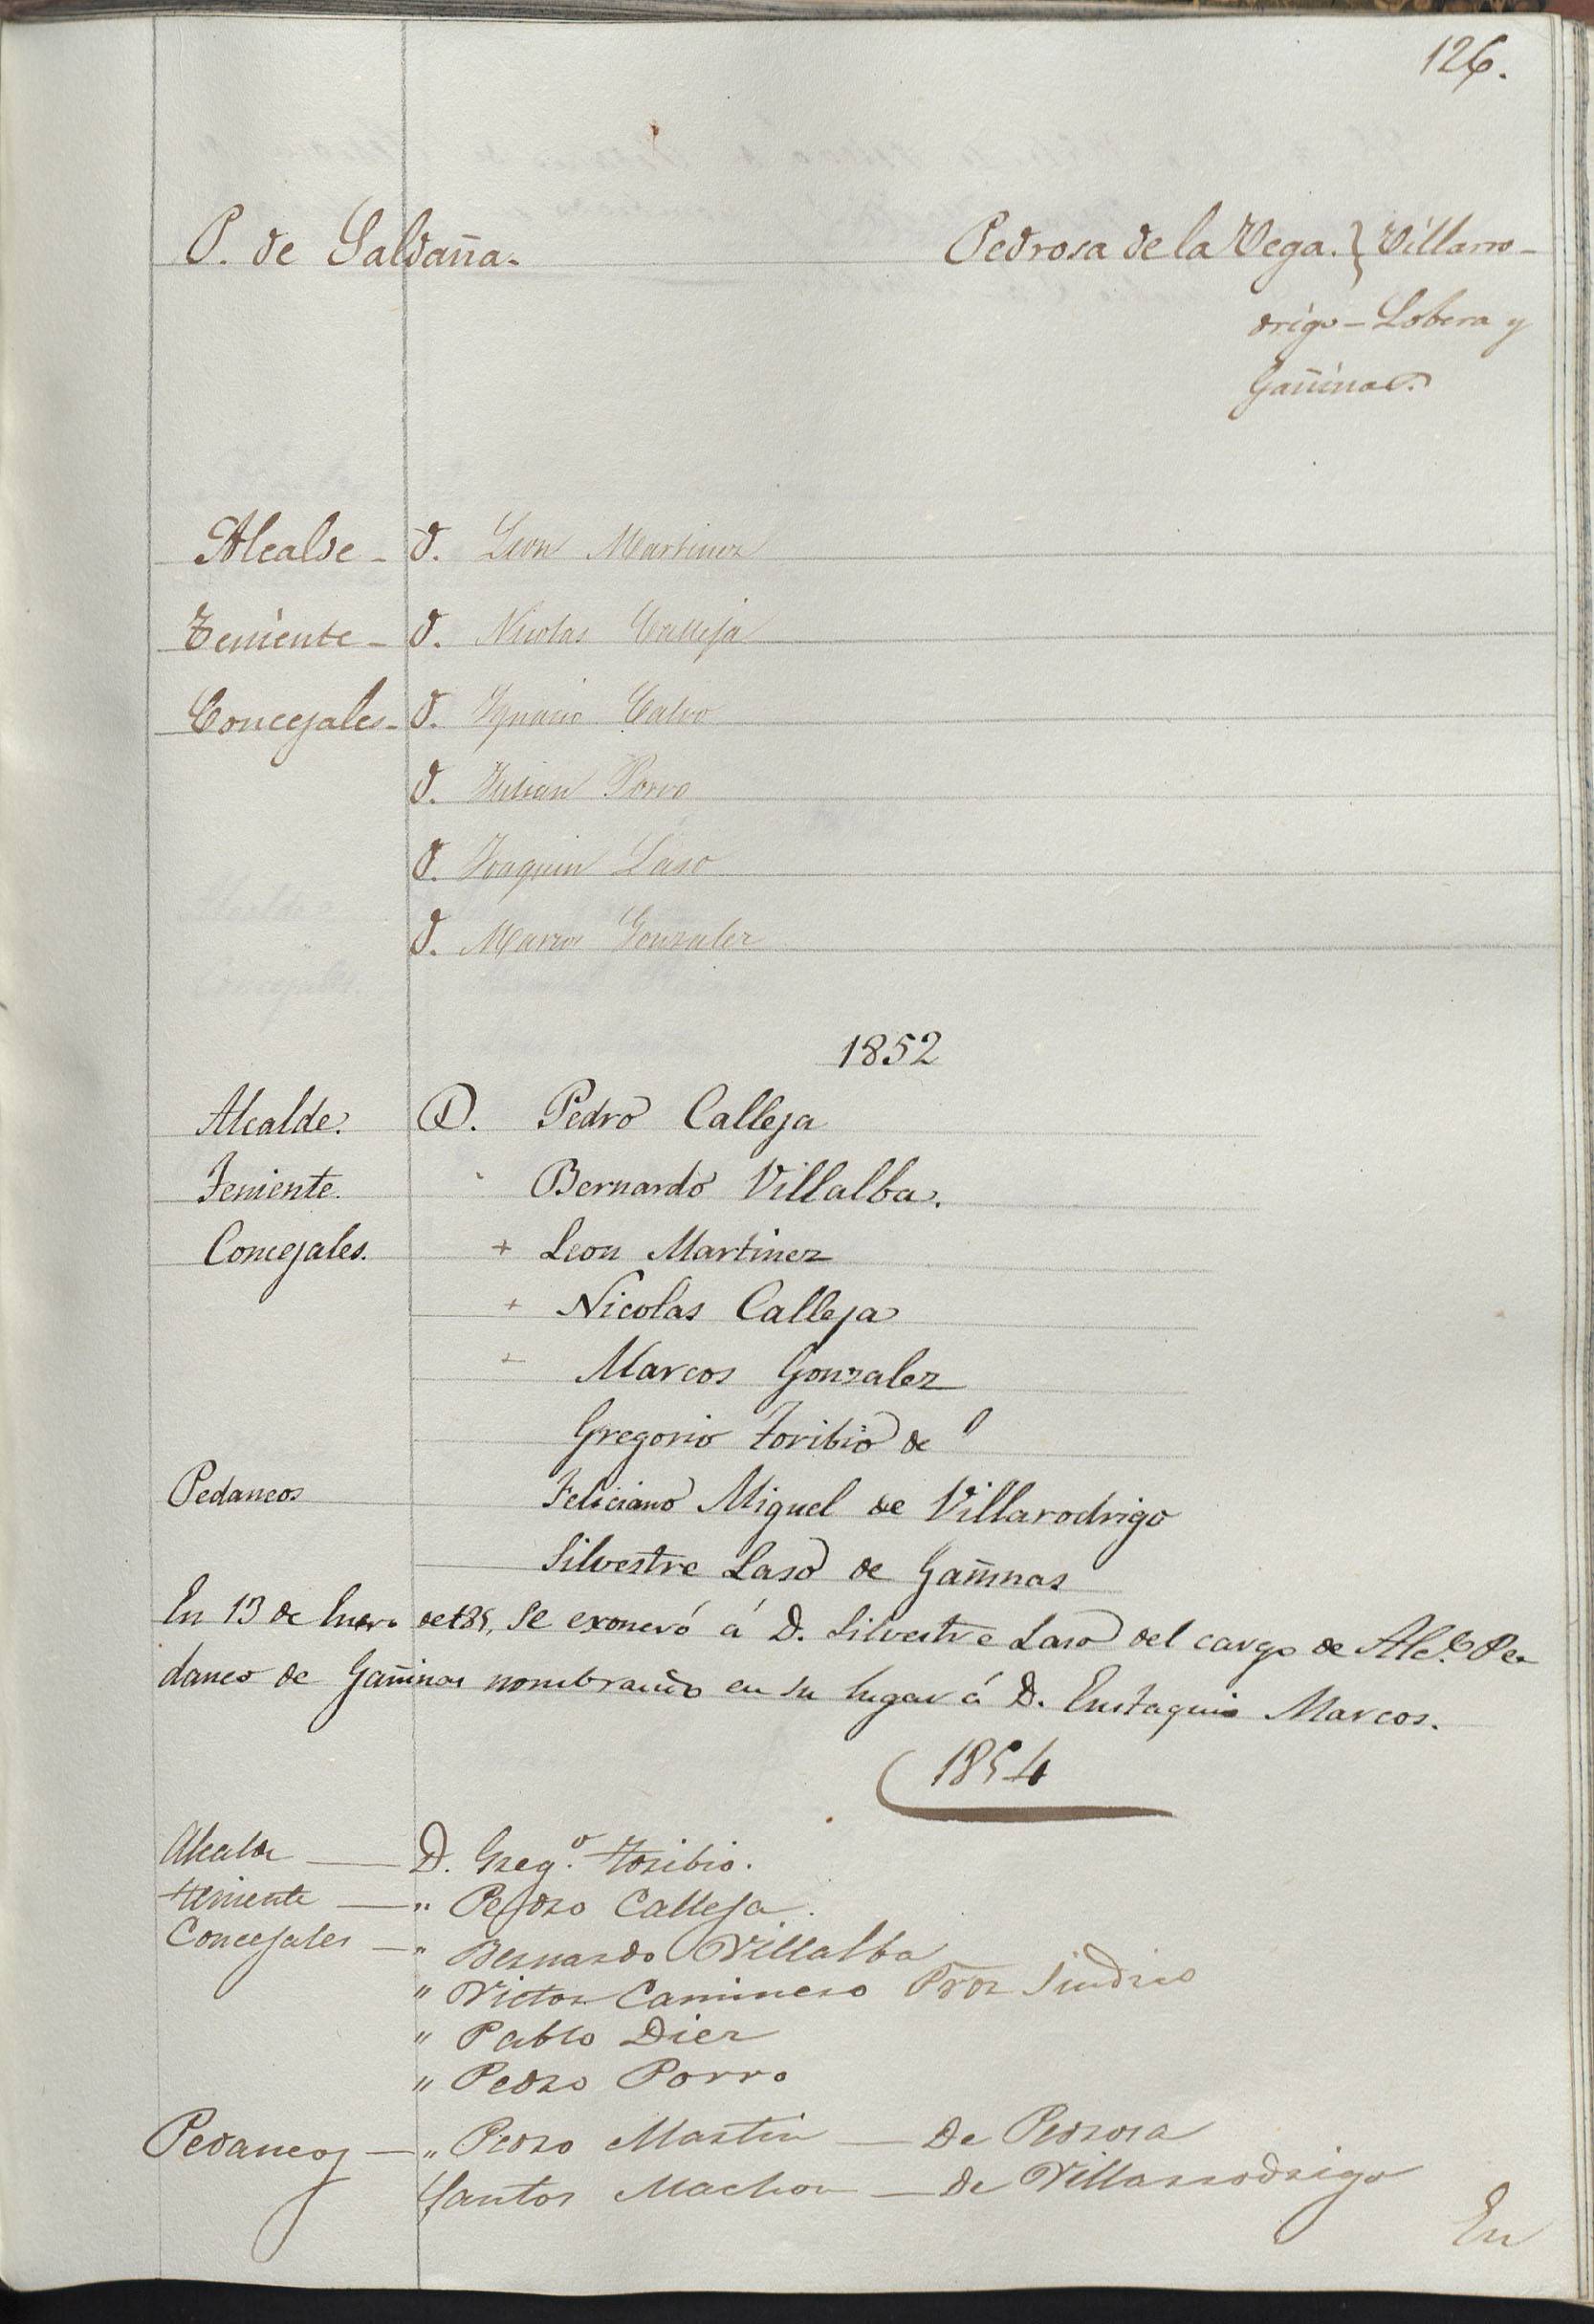 126.
P. de Saldaña. Pedrosa de la Vega. } Villarro-
drigo - Lobera y
Gañinas.
Alcalde - D. Leon Martinez
Teniente - D. Nicolas Calleja
Concejales - D. Ygnacio Calvo
D. Julian Porro
D. Joaquin Laso
D. Marcos Gonzalez
1852
Alcalde. D. Pedro Calleja
Teniente. Bernardo Villalba.
Concejales. + Leon Martinez
+ Nicolas Calleja
+ Marcos Gonzalez
Gregorio Toribio de
Pedaneos Feliciano Miguel de Villarodrigo
Silvestre Laso de Gañinas
En 13 de Enero de 185, se exoneró á D. Silvestre Laso del cargo de Alce. Pe-
daneo de Gañinas nombrando en su lugar á D. Eustaquio Marcos.
1854
Alcalde — D. Greg.o Toribio.
Teniente — " Pedro Calleja.
Concejales — " Bernardo Villalba
" Victor Caminero Pror Sindico
" Pablo Diez
" Pedro Porro
Pedaneos — " Pedro Martin — De Pedrosa
Santos Machon — De Villarrodrigo
En